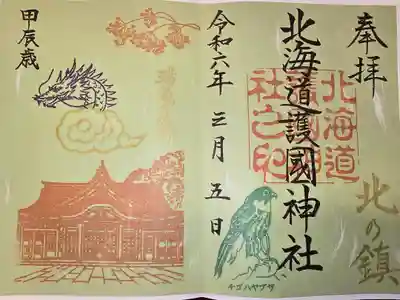 奉拝
北海道
護國神
社之印
北の鎮
北海道護國神社
令和六年三月五日
チゴハヤブサ
甲辰歳